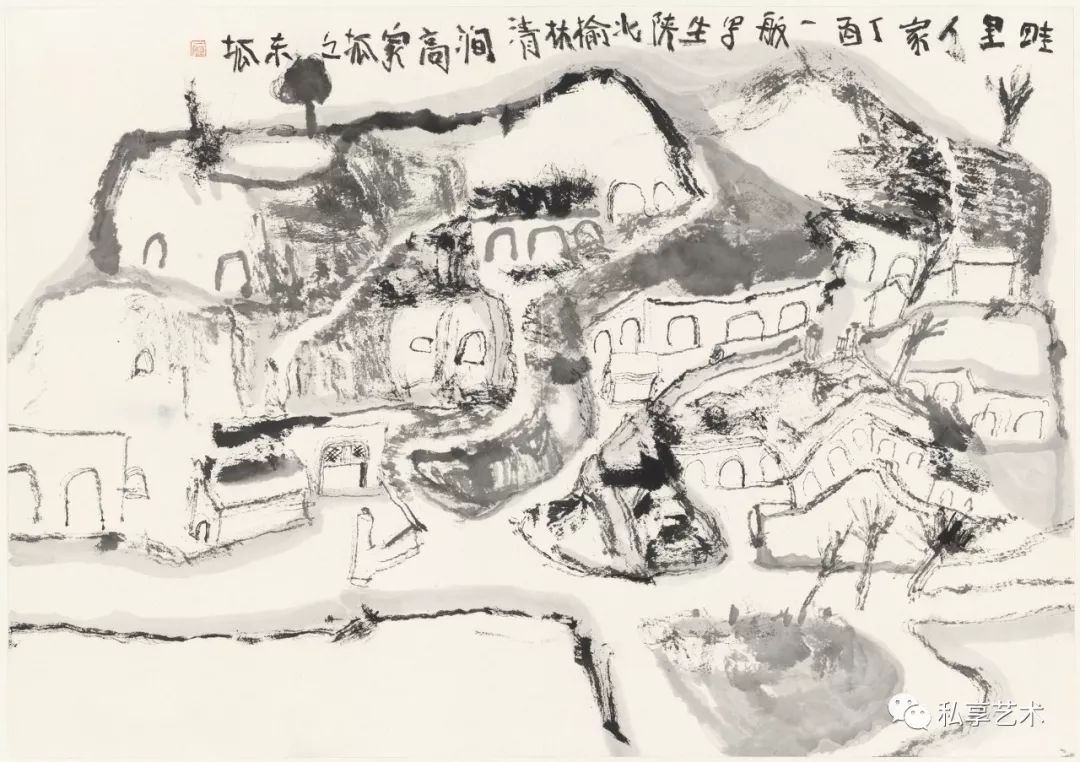 畦里人家丁酉一般写生陕北榆林清涧高家坬之东坬
私享艺术